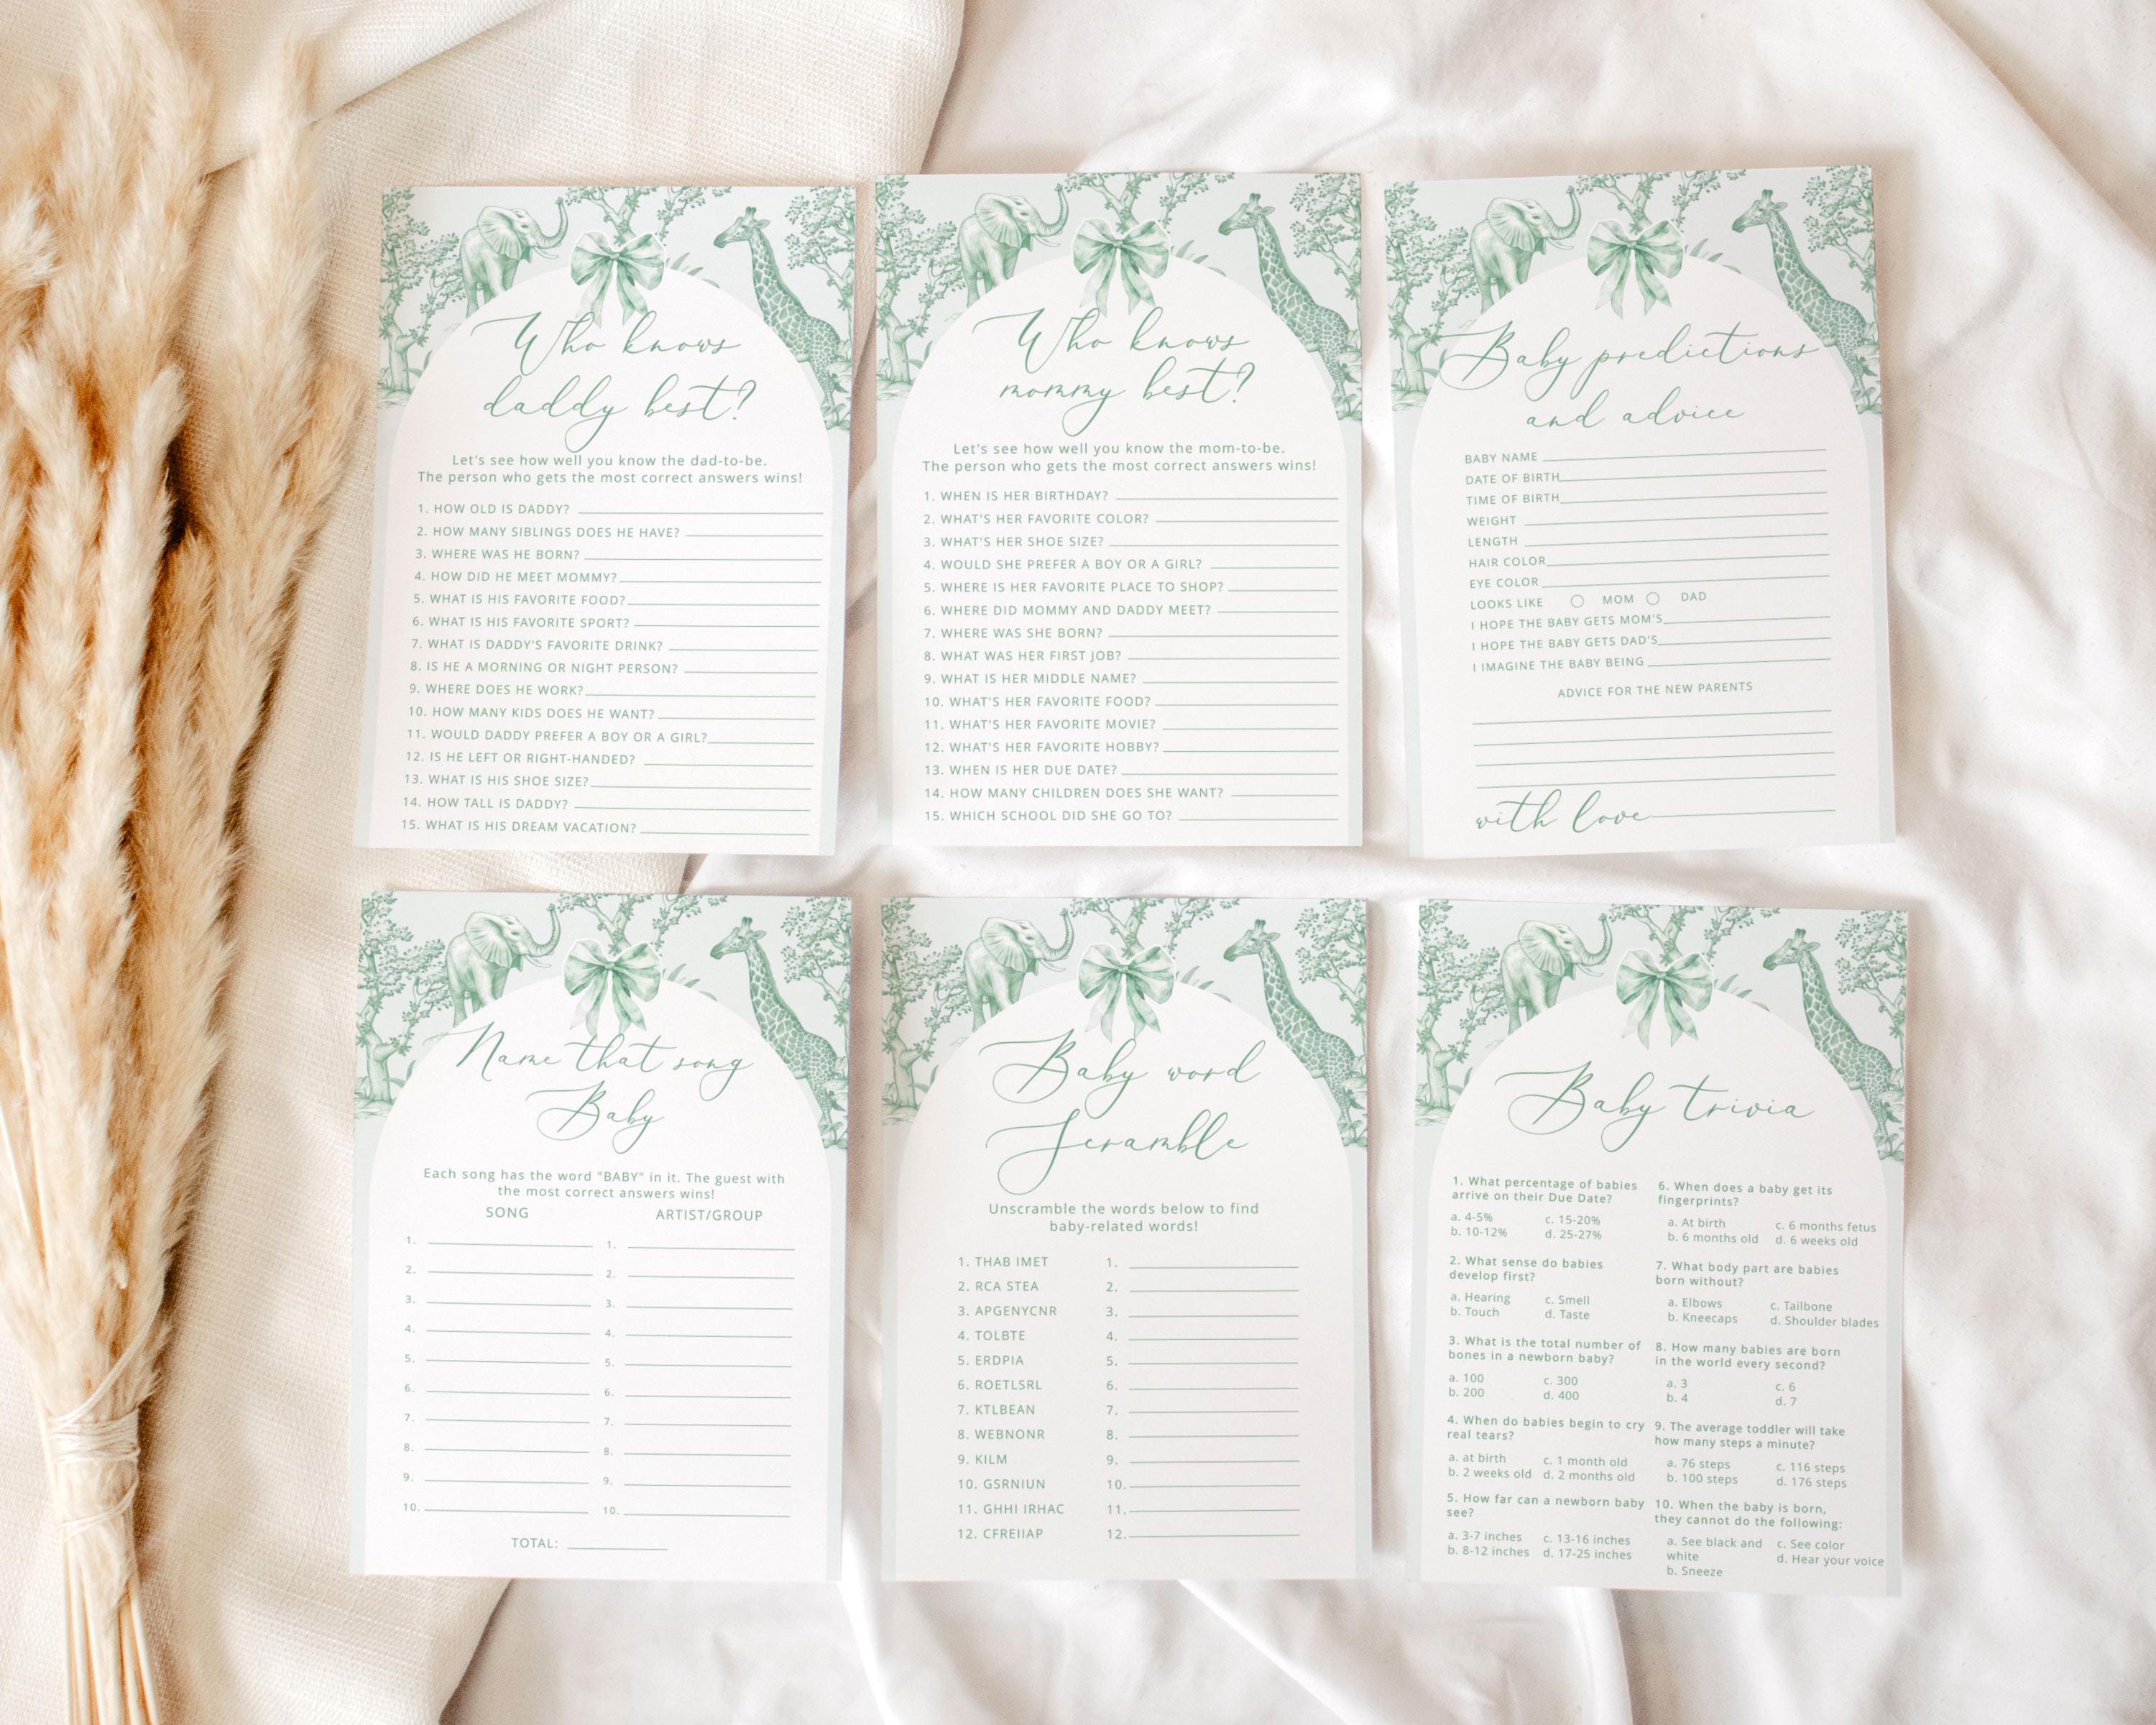 Who knows
daddy best?
Let's see how well you know the dad-to-be.
The person who gets the most correct answers wins!
1. HOW OLD IS DADDY?
2. HOW MANY SIBLINGS DOES HE HAVE?
3. WHERE WAS HE BORN?
4. HOW DID HE MEET MOMMY?
5. WHAT IS HIS FAVORITE FOOD?
6. WHAT IS HIS FAVORITE SPORT?
7. WHAT IS DADDY'S FAVORITE DRINK?
8. IS HE A MORNING OR NIGHT PERSON?
9. WHERE DOES HE WORK?
10. HOW MANY KIDS DOES HE WANT?
11. WOULD DADDY PREFER A BOY OR A GIRL?
12. IS HE LEFT OR RIGHT-HANDED?
13. WHAT IS HIS SHOE SIZE?
14. HOW TALL IS DADDY?
15. WHAT IS HIS DREAM VACATION?
Who knows
mommy best?
Let's see how well you know the mom-to-be.
The person who gets the most correct answers wins!
1. WHEN IS HER BIRTHDAY?
2. WHAT'S HER FAVORITE COLOR?
3. WHAT'S HER SHOE SIZE?
4. WOULD SHE PREFER A BOY OR A GIRL?
5. WHERE IS HER FAVORITE PLACE TO SHOP?
6. WHERE DID MOMMY AND DADDY MEET?
7. WHERE WAS SHE BORN?
8. WHAT WAS HER FIRST JOB?
9. WHAT IS HER MIDDLE NAME?
10. WHAT'S HER FAVORITE FOOD?
11. WHAT'S HER FAVORITE MOVIE?
12. WHAT'S HER FAVORITE HOBBY?
13. WHEN IS HER DUE DATE?
14. HOW MANY CHILDREN DOES SHE WANT?
15. WHICH SCHOOL DID SHE GO TO?
Baby predictions
and advice
BABY NAME
DATE OF BIRTH
TIME OF BIRTH
WEIGHT
LENGTH
HAIR COLOR
EYE COLOR
LOOKS LIKE MOM DAD
I HOPE THE BABY GETS MOM'S
I HOPE THE BABY GETS DAD'S
I IMAGINE THE BABY BEING
ADVICE FOR THE NEW PARENTS
with love
Name that song
Baby
Each song has the word "BABY" in it. The guest with
the most correct answers wins!
SONG ARTIST/GROUP
1. 1.
2. 2.
3. 3.
4. 4.
5. 5.
6. 6.
7. 7.
8. 8.
9. 9.
10. 10.
TOTAL:
Baby word
Scramble
Unscramble the words below to find
baby-related words!
1. THAB IMET 1.
2. RCA STEA 2.
3. APGENYCNR 3.
4. TOLBTE 4.
5. ERDPIA 5.
6. ROETLSRL 6.
7. KTLBEAN 7.
8. WEBNONR 8.
9. KILM 9.
10. GSRNIUN 10.
11. GHHI IRHAC 11.
12. CFREIIAP 12.
Baby trivia
1. What percentage of babies
arrive on their Due Date?
a. 4-5% c. 15-20%
b. 10-12% d. 25-27%
2. What sense do babies
develop first?
a. Hearing c. Smell
b. Touch d. Taste
3. What is the total number of
bones in a newborn baby?
a. 100 c. 300
b. 200 d. 400
4. When do babies begin to cry
real tears?
a. at birth c. 1 month old
b. 2 weeks old d. 2 months old
5. How far can a newborn baby
see?
a. 3-7 inches c. 13-16 inches
b. 8-12 inches d. 17-25 inches
6. When does a baby get its
fingerprints?
a. At birth c. 6 months fetus
b. 6 months old d. 6 weeks old
7. What body part are babies
born without?
a. Elbows c. Tailbone
b. Kneecaps d. Shoulder blades
8. How many babies are born
in the world every second?
a. 3 c. 6
b. 4 d. 7
9. The average toddler will take
how many steps a minute?
a. 76 steps c. 116 steps
b. 100 steps d. 176 steps
10. When the baby is born,
they cannot do the following:
a. See black and c. See color
white d. Hear your voice
b. Sneeze